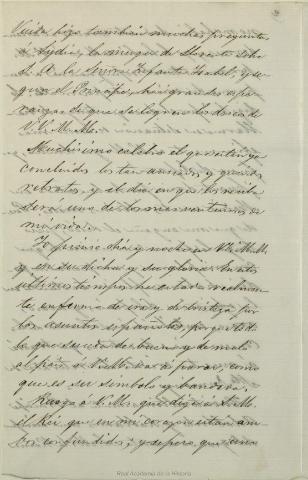 Viuda hizo tambien muchas preguntas
S. A. la Serma Infanta Isabel, y se-
gun el Principe, hay grandes espe-
ranzas de que se logren los deseos de
V.V. M.M.
Muchísimo celebro el que esten ya
concluidos los tan ansiados y grandes
retratos, y el dia en que los reciba
será uno de los mas venturosos de
mi vida.
Yo pienso dia y noche en VV. M.M.
y en su dicha y su gloria. En estos
ultimos tiempos he estado realmen-
te enferma de ira y de tristeza por
los asuntos españoles, porque todo
lo que suceda de bueno y de malo
al pais á VV.MM. va á parar, como
que es su simbolo y bandera.
Ruego á V.M. que diga á S.M.
el Rei que en mi corazon estan am-
bos confundidos; y espero que una
Real Academia de la Historia